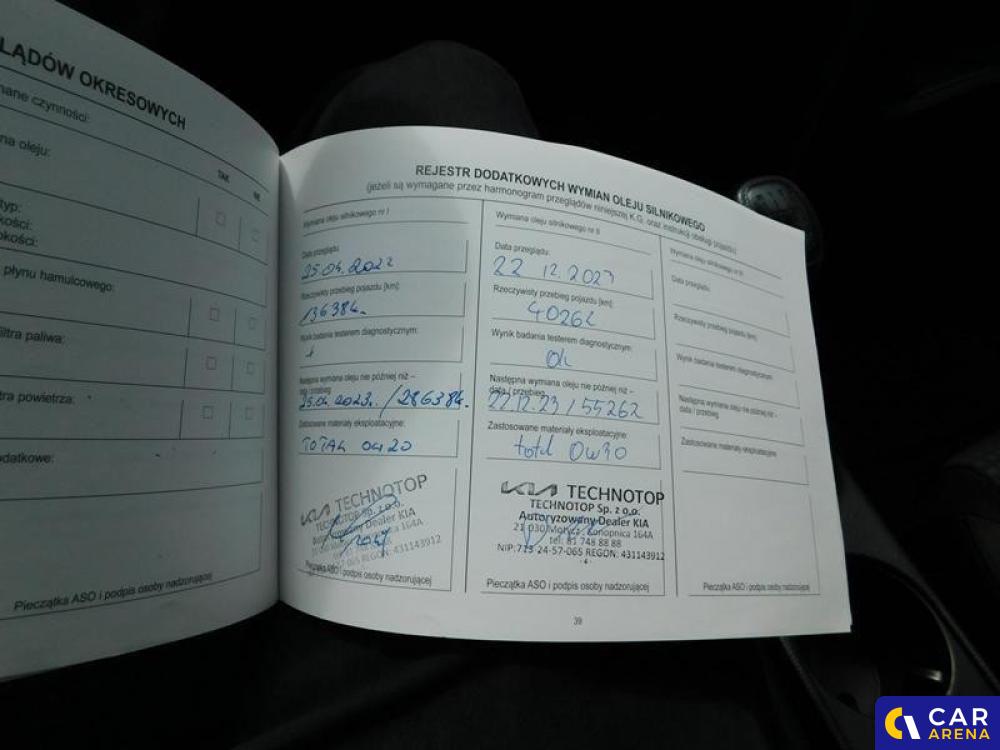 LĄDÓW OKRESOWYCH
nane czynności:
na oleju:
TAK
NIE
typ:
kości:
okości:
płynu hamulcowego:
filtra paliwa:
tra powietrza:
odatkowe:
Pieczątka ASO i podpis osoby nadzorującej
REJESTR DODATKOWYCH WYMIAN OLEJU SILNIKOWEGO
(jeżeli są wymagane przez harmonogram przeglądów niniejszej K.G. oraz instrukcji obsługi pojazdu)
Wymiana oleju silnikowego nr I
Data przeglądu
25.04.2022
Rzeczywisty przebieg pojazdu [km]:
13638k.
Wynik badania testerem diagnostycznym:
Następna wymiana oleju nie później niż –
data / przebieg
25.04.2023. / 28638k.
Zastosowane materiały eksploatacyjne:
TOTAL 0W20
KIA TECHNOTOP
TECHNOTOP Sp. z o.o.
Autoryzowany Dealer KIA
REGON: 431143912
Pieczątka ASO i podpis osoby nadzorującej
Wymiana oleju silnikowego nr II
Data przeglądu:
22 12.202
Rzeczywisty przebieg pojazdu [km]:
40262
Wynik badania testerem diagnostycznym:
Ok
Następna wymiana oleju nie później niż –
data / przebieg
22.12.23 / 55262
Zastosowane materiały eksploatacyjne:
total 0w30
KIA TECHNOTOP
TECHNOTOP Sp. z o.o.
Autoryzowany Dealer KIA
21-030 Motycz, Konopnica 164A
tel. 81 748 88 88
NIP:713-24-57-065 REGON: 431143912
- 4 -
Pieczątka ASO i podpis osoby nadzorującej
Wymiana oleju silnikowego nr III
Data przeglądu:
Rzeczywisty przebieg pojazdu [km]:
Wynik badania testerem diagnostycznym:
Następna wymiana oleju nie później niż –
data / przebieg
Zastosowane materiały eksploatacyjne:
Pieczątka ASO i podpis osoby nadzorującej
39
CAR
ARENA